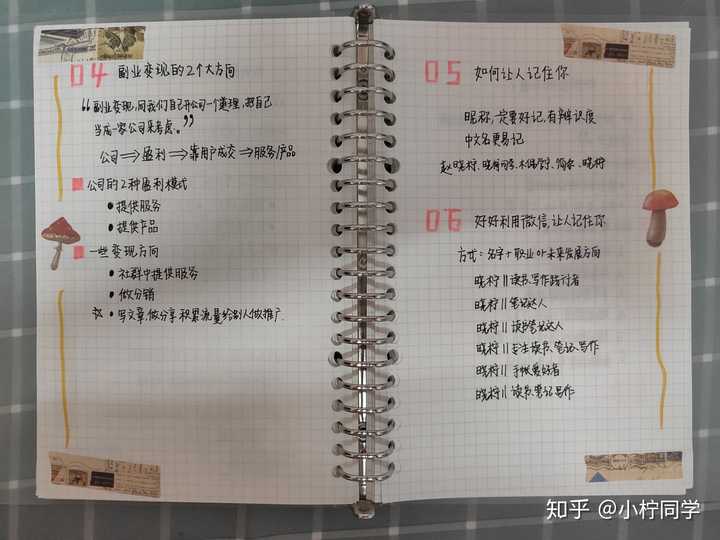 04 副业变现的2个大方向
“副业变现,同我们自己开公司一个道理,把自己
当成一家公司来考虑。”
公司⇒盈利⇒靠用户成交⇒服务/产品
公司的2种盈利模式
• 提供服务
• 提供产品
一些变现方向
• 社群中提供服务
• 做分销
☆ • 写文章.做分享.积累流量给别人做推广.
05 如何让人记住你
昵称,一定要好记,有辨识度
中文名更易记
赵晓柠、晓柠同学、、晓柠
06 好好利用微信,让人记住你
方式:名字+职业or未来发展方向
晓柠||读书.写作践行者
晓柠||笔记达人
晓柠||读书笔记达人
晓柠||专注读书、笔记、写作
晓柠||手帐爱好者
晓柠||读书.笔记.写作
知乎 @小柠同学